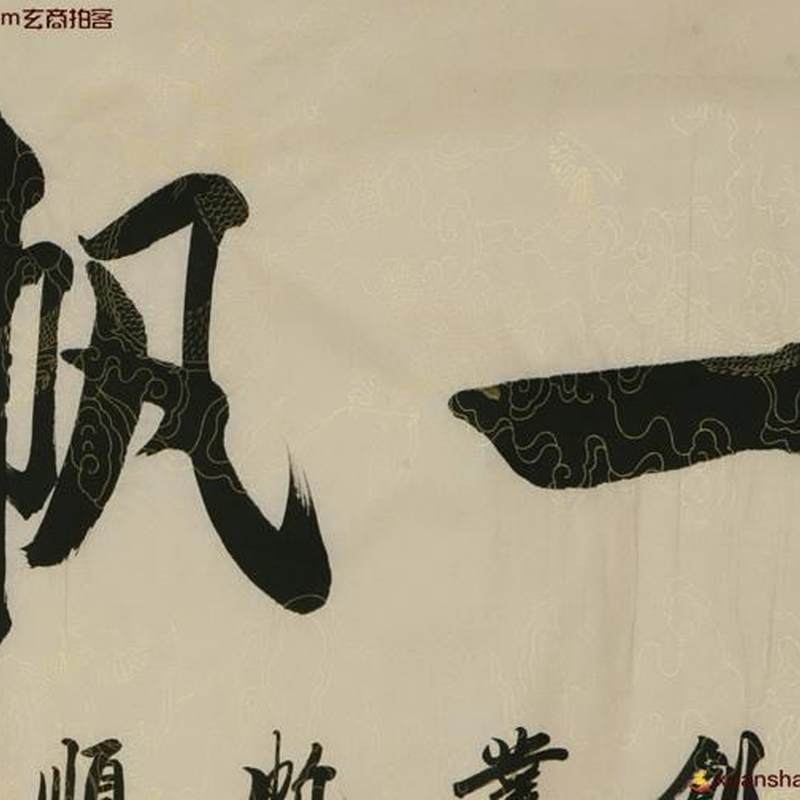 m玄商拍客
一帆
創業順
xuansha